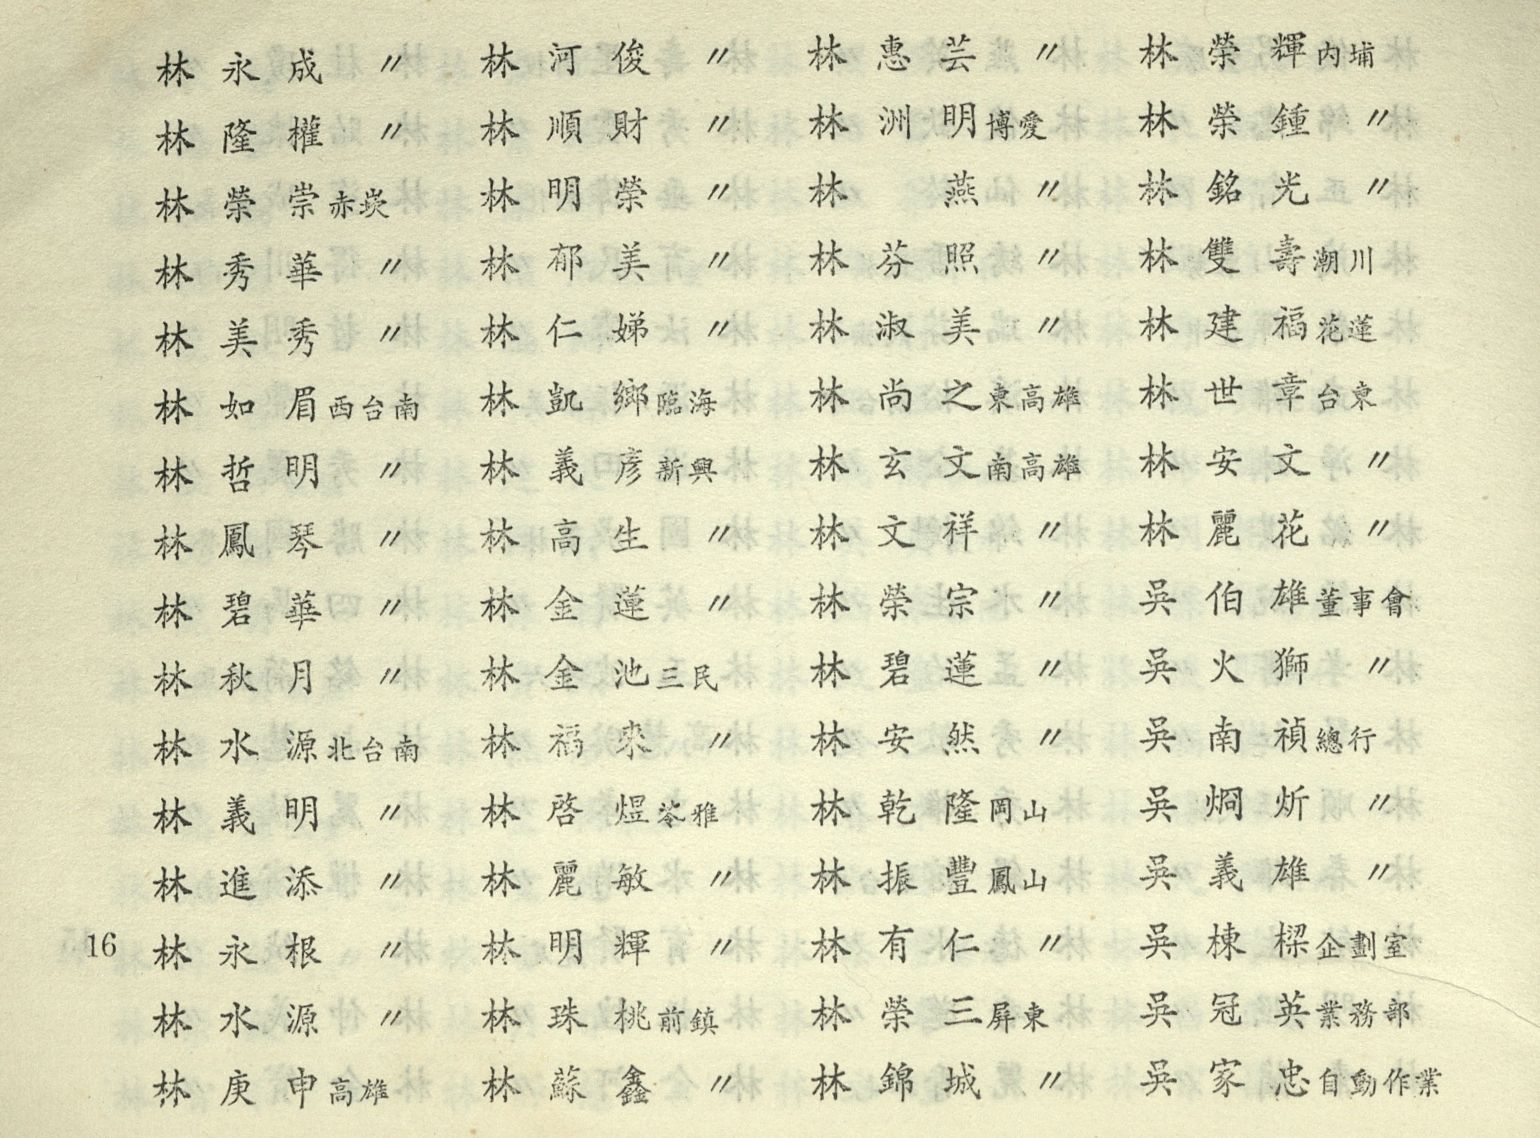 林永成 〃
林隆權 〃
林榮崇 赤崁
林秀華 〃
林美秀 〃
林如眉 西台南
林哲明 〃
林鳳琴 〃
林碧華 〃
林秋月 〃
林水源 北台南
林義明 〃
林進添 〃
林永根 〃
林水源 〃
林庚申 高雄
林河俊 〃
林順財 〃
林明榮 〃
林郁美 〃
林仁娣 〃
林凱鄉 臨海
林義彥 新興
林高生 〃
林金蓮 〃
林金池 三民
林福來 〃
林啓煜 苓雅
林麗敏 〃
林明輝 〃
林珠桃 前鎮
林蘇鑫 〃
林惠芸 〃
林洲明 博愛
林燕 〃
林芬照 〃
林淑美 〃
林尚之 東高雄
林玄文 南高雄
林文祥 〃
林榮宗 〃
林碧蓮 〃
林安然 〃
林乾隆 岡山
林振豐 鳳山
林有仁 〃
林榮三 屏東
林錦城 〃
林榮輝 內埔
林榮鍾 〃
林銘光 〃
林雙壽 潮川
林建福 花蓮
林世章 台東
林安文 〃
林麗花 〃
吳伯雄 董事會
吳火獅 〃
吳南禎 總行
吳炯炘 〃
吳義雄 〃
吳棟樑 企劃室
吳冠英 業務部
吳家忠 自動作業
16